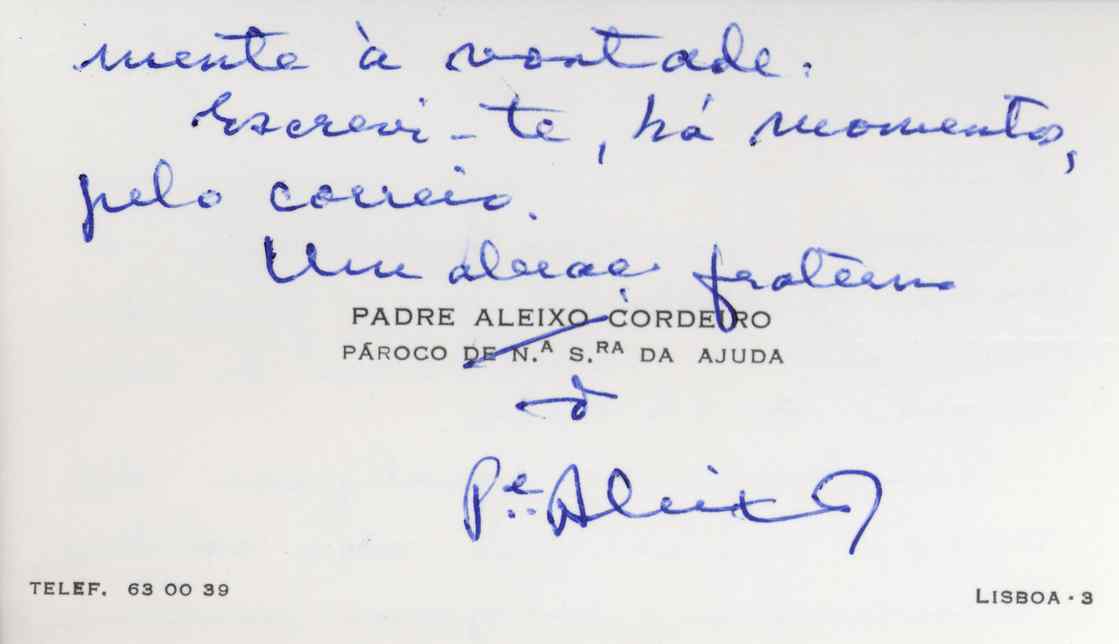 mente à vontade.
Escrevi-te, há momentos,
pelo correio.
Um abraço fraterno
PADRE ALEIXO CORDEIRO
PÁROCO DE N.ª S.RA DA AJUDA
do
P.e Aleixo
TELEF. 63 00 39
LISBOA - 3